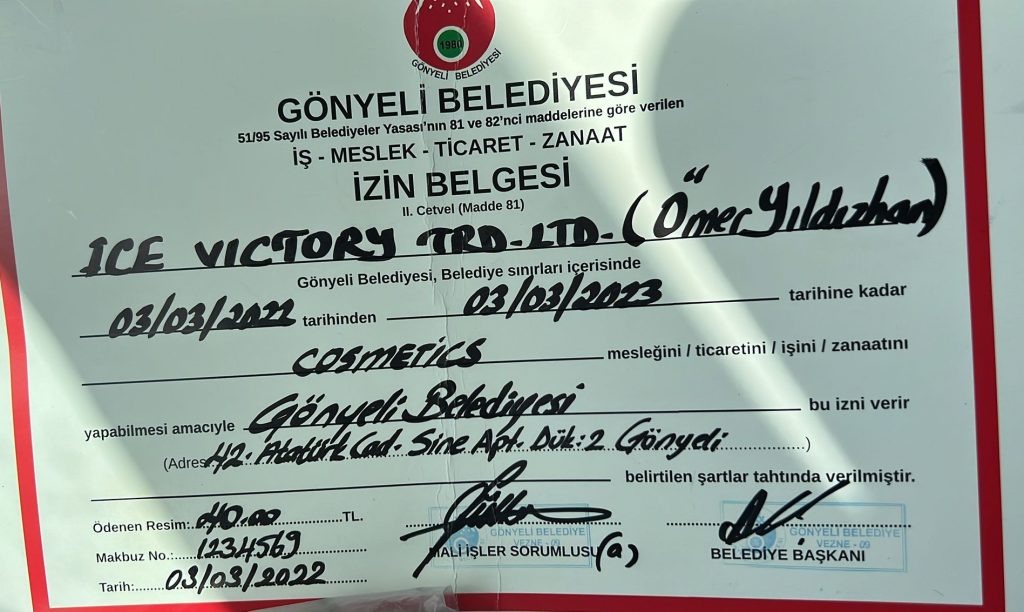 1980
GÖNYELİ BELEDİYESİ
GÖNYELİ BELEDİYESİ
51/95 Sayılı Belediyeler Yasası'nın 81 ve 82'nci maddelerine göre verilen
İŞ - MESLEK - TİCARET - ZANAAT
İZİN BELGESİ
II. Cetvel (Madde 81)
ICE VICTORY TRD-LTD- (Ömer Yıldızhan)
Gönyeli Belediyesi, Belediye sınırları içerisinde
03/03/2022 tarihinden 03/03/2023 tarihine kadar
COSMETICS mesleğini / ticaretini / işini / zanaatını
yapabilmesi amacıyle Gönyeli Belediyesi bu izni verir
(Adres 42. Atatürk Cad. Sine Apt. Dük:2 Gönyeli )
belirtilen şartlar tahtında verilmiştir.
Ödenen Resim: 40.00 TL.
Makbuz No.: 1234569
Tarih: 03/03/2022
GÖNYELİ BELEDİYE
VEZNE - 09
MALİ İŞLER SORUMLUSU (a)
GÖNYELİ BELEDİYE
VEZNE - 09
BELEDİYE BAŞKANI